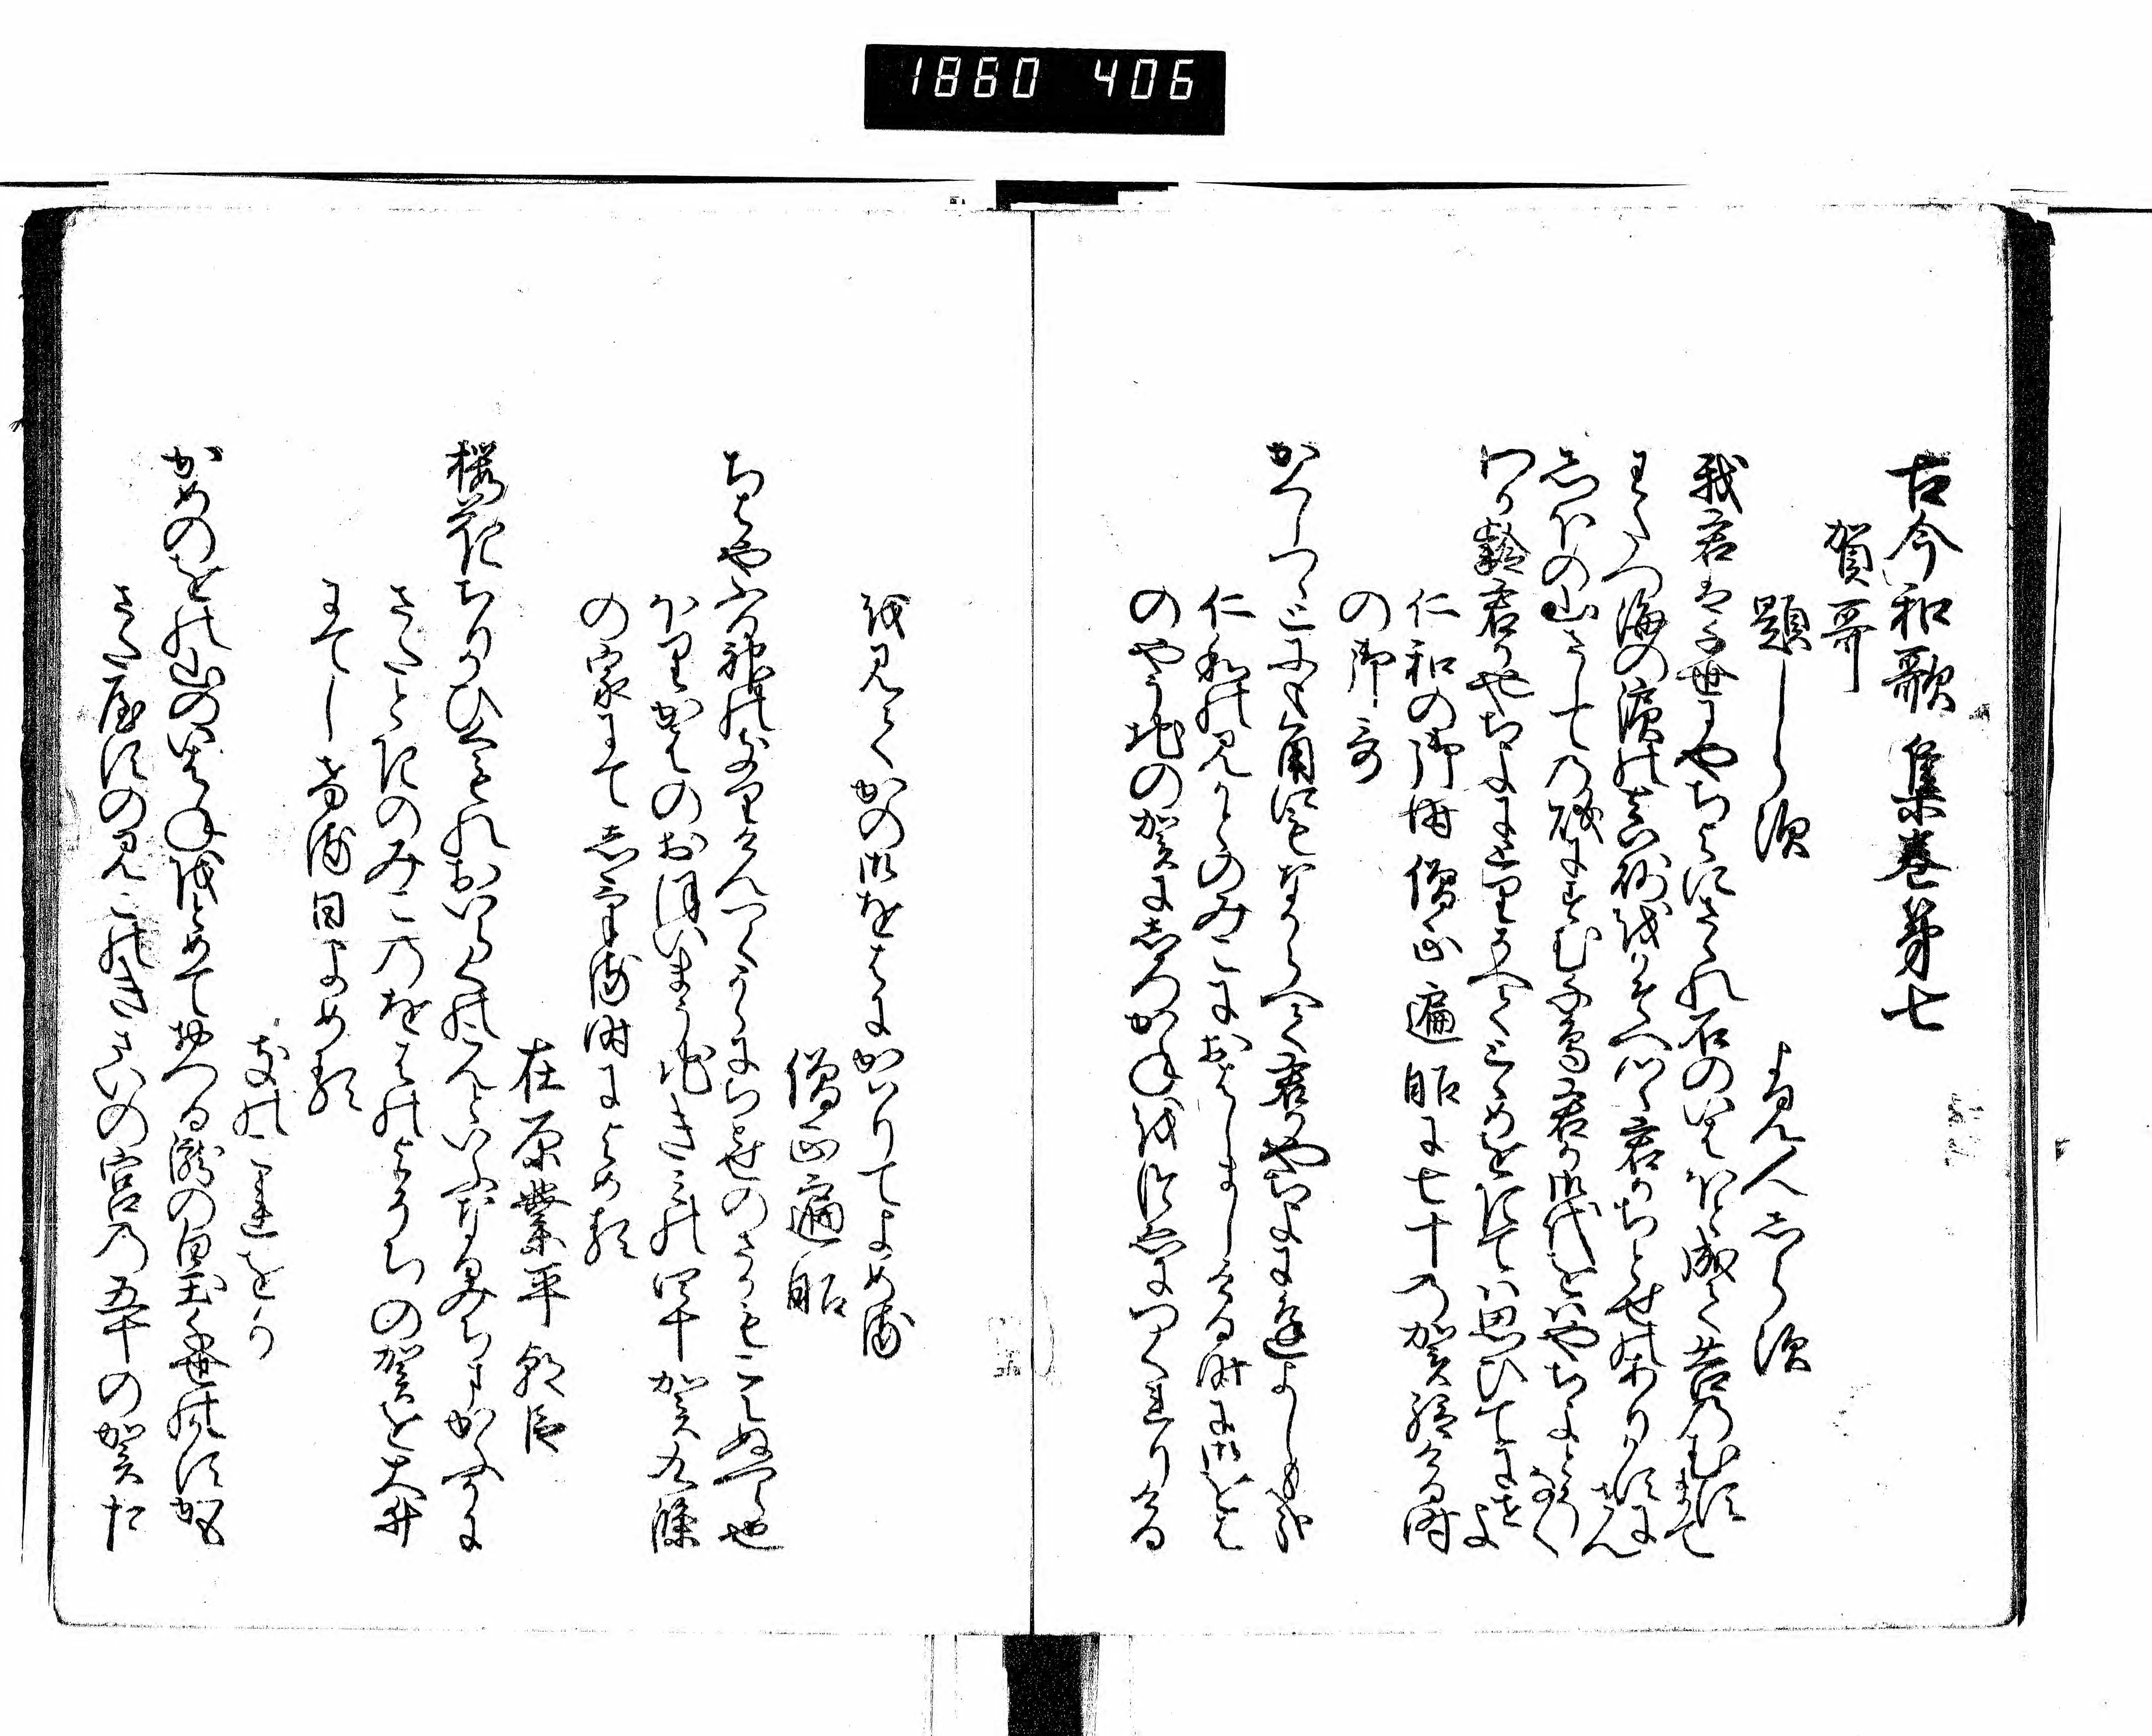 1860 406
古今和歌集巻第七
賀哥
題しら須
よみ人志ら須
我君は千世にやちよにさゝれ石のいはほと成て苔のむすまて
わたつ海の濱の真砂をかそへつゝ君かちとせのありかすにせん
志ほの山さしての磯にすむ千鳥君か御代をはやちよとそなく
わか齢君かやちよにとりそへてとゝめをきては思ひてにせよ
仁和の御時僧正遍昭に七十の賀給ける時
の御哥
かくしつゝとにもかくにもなからへて君かやちよに逢よしもかな
仁和のみかとのみこにおはしましける時に御をは
のやそちの賀に志ろかねを杖につくれりける
を見てかの御をはにかはりてよめる
僧正遍昭
ちはやふる神のきりけんつくからにちとせのさかもこえぬへら也
ほり河のおほいまうちきみの四十賀九條
の家にて志ける時によめる
在原業平朝臣
櫻花ちりかひくもれおいらくのこんといふなるみちまかふかに
さたときのみこのをはのよそちの賀を大井
にてしける日よめる
きのこれをか
かめのをの山のいはねをとめておつる瀧の白玉千世のかすかも
さたやすのみこのきさいの宮の五十の賀た